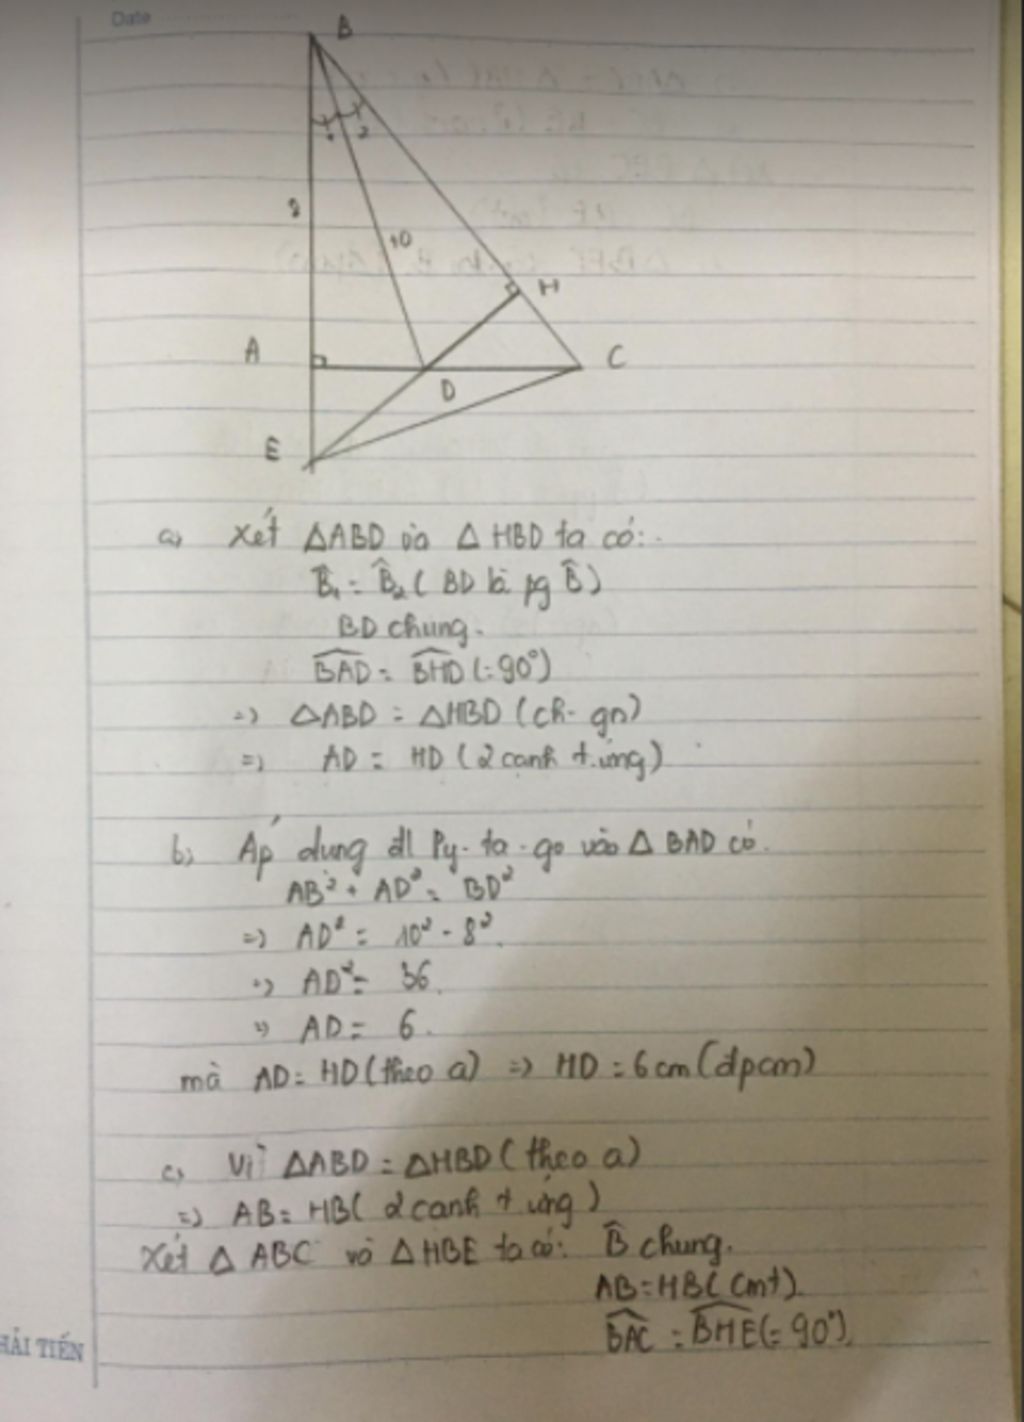 Date
B
1 2
8
10
H
A
C
D
E
a) Xét ΔABD và Δ HBD ta có:
B̂₁ = B̂₂ ( BD là pg B̂)
BD chung.
\widehat{BAD} = \widehat{BHD} (=90°)
=> ΔABD = ΔHBD (ch - gn)
=> AD = HD (2 cạnh t.ứng)
b) Áp dụng đl Py-ta-go vào Δ BAD có.
AB² + AD² = BD²
=> AD² = 10² - 8².
=> AD² = 36.
=> AD = 6.
mà AD = HD (theo a) => HD = 6cm (đpcm)
c) Vì ΔABD = ΔHBD (theo a)
=> AB = HB ( 2 cạnh t ứng )
Xét Δ ABC và Δ HBE ta có: B̂ chung.
AB = HB ( cmt).
\widehat{BAC} = \widehat{BHE} (= 90°).
HẢI TIẾN